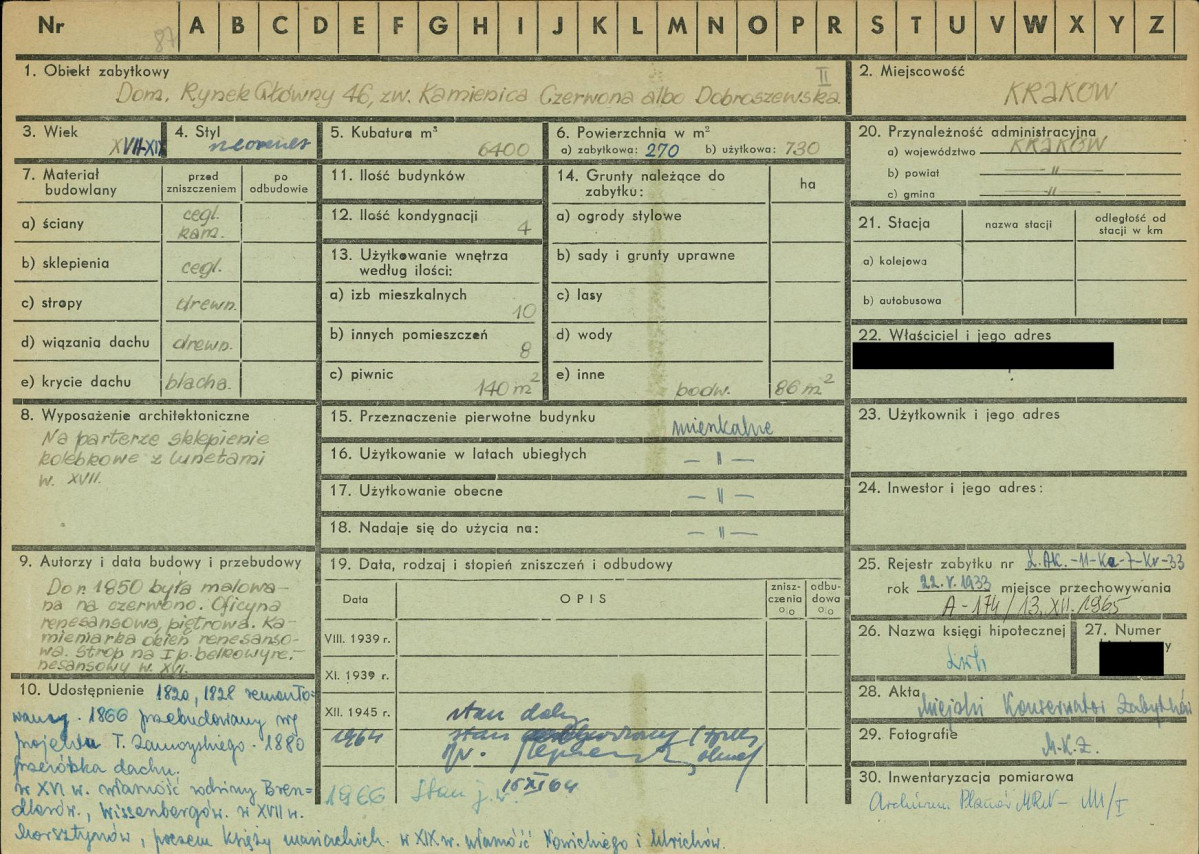 Nr
87
A B C D E F G H I J K L M N O P R S T U V W X Y Z
1. Obiekt zabytkowy
II
Dom, Rynek Główny 46, zw. Kamienica Czerwona albo Dobroszewska
2. Miejscowość
KRAKÓW
3. Wiek
XVII-XIX
4. Styl
5. Kubatura m³
6400
6. Powierzchnia w m²
a) zabytkowa: 270 b) użytkowa: 730
20. Przynależność administracyjna
a) województwo KRAKÓW
b) powiat -"-
c) gmina -"-
7. Materiał budowlany
przed zniszczeniem
po odbudowie
a) ściany cegl. kam.
b) sklepienia cegl.
c) stropy drewn.
d) wiązania dachu drewn.
e) krycie dachu blacha.
11. Ilość budynków
12. Ilość kondygnacji
4
13. Użytkowanie wnętrza
według ilości:
a) izb mieszkalnych
10
b) innych pomieszczeń
8
c) piwnic
140 m²
14. Grunty należące do
zabytku:
ha
a) ogrody stylowe
b) sady i grunty uprawne
c) lasy
d) wody
e) inne
podw. 86 m²
21. Stacja
nazwa stacji
odległość od
stacji w km
a) kolejowa
b) autobusowa
22. Właściciel i jego adres
8. Wyposażenie architektoniczne
Na parterze sklepienie
kolebkowe z lunetami
w. XVII.
15. Przeznaczenie pierwotne budynku
mieszkalne
16. Użytkowanie w latach ubiegłych
— " —
17. Użytkowanie obecne
— " —
18. Nadaje się do użycia na:
— " —
23. Użytkownik i jego adres
24. Inwestor i jego adres:
9. Autorzy i data budowy i przebudowy
Do r. 1850 była malowa-
na na czerwono. Oficyna
renesansowa, piętrowa. Ka-
mieniarka okien renesanso-
wa. Strop na I p. belkowy re-
nesansowy w. XVI.
10. Udostępnienie
1820, 1828 remonto-
wany. 1866 przebudowany wg
projektu T. Zamoyskiego. 1880
przeróbka dachu.
w XVI w. własność rodziny Bren-
dlerów, Wissenbergów. w XVII w.
Morsztynów, potem księży mariackich. w XIX w. własność Nowickiego i Ulrichów.
19. Data, rodzaj i stopień zniszczeń i odbudowy
Data
OPIS
znisz-
czenia
%
odbu-
dowa
%
VIII. 1939 r.
XI. 1939 r.
XII. 1945 r.
stan dobry
1964
stan
16 XI 64
1966 Stan j. w.
25. Rejestr zabytku nr L.AK.-11-Ka-7-Kr-33
rok 22.V.1933 miejsce przechowywania
A-174/13.XII.1965
26. Nazwa księgi hipotecznej
Lwh
27. Numer
28. Akta
Miejski Konserwator Zabytków
29. Fotografie
M.K.Z.
30. Inwentaryzacja pomiarowa
Archiwum Planów MRN - III/I